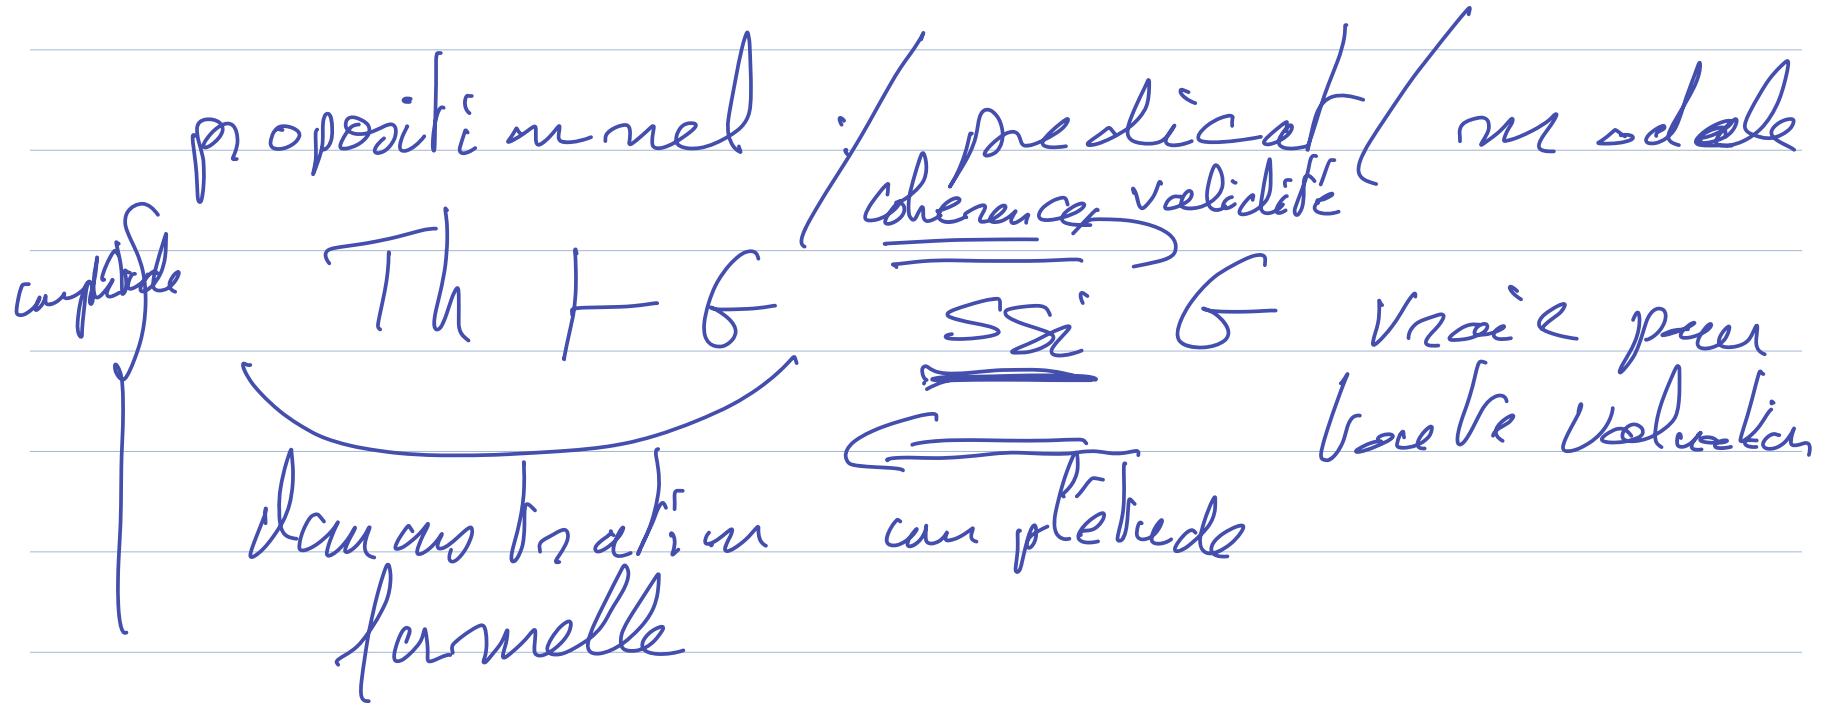 propositionnel : / predicat / modale
cohérence, validité
complétude
Th ⊢ σ ssi σ vraie pour
toute valuation
démonstration complétude
formelle